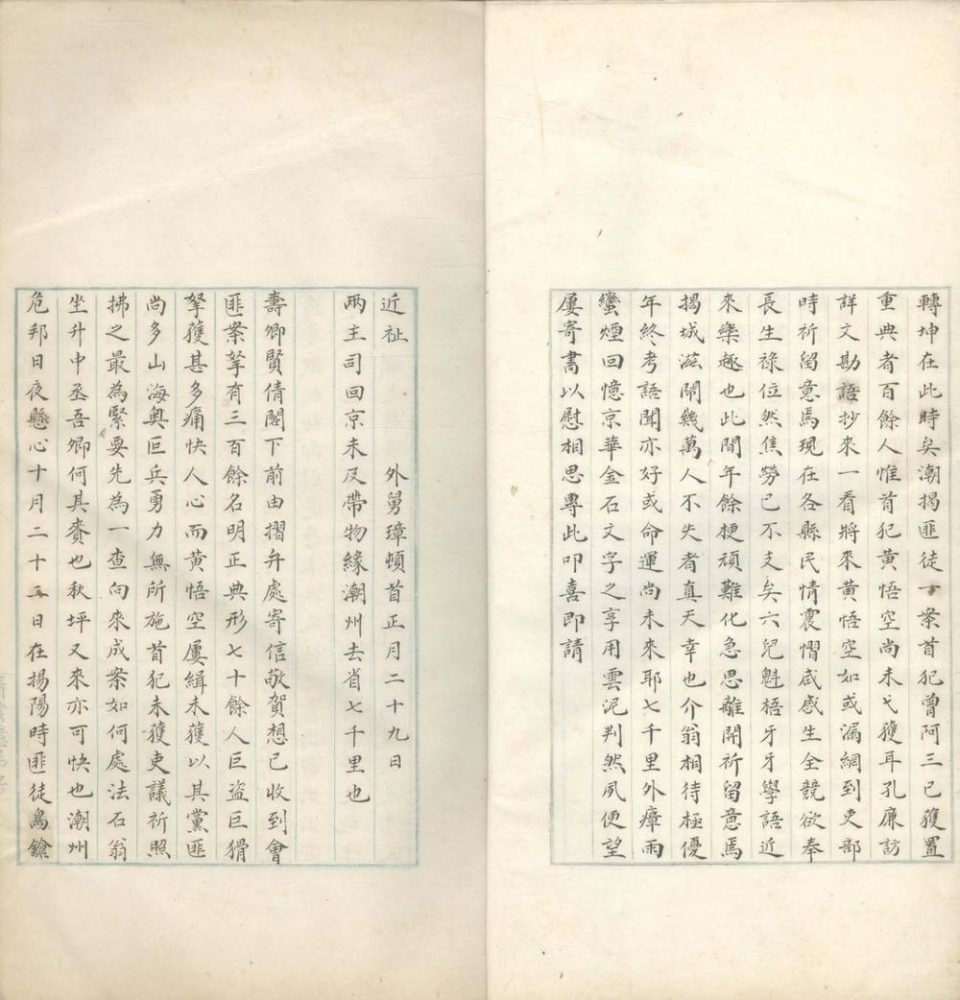 轉坤在此時矣潮揭匪徒一案首犯曾阿三已獲置
重典者百餘人惟首犯黃悟空尚未弋獲耳孔廉訪
詳文勘語抄來一看將來黃悟空如或漏網到吏部
時祈留意焉現在各縣民情震慴咸感生全競欲奉
長生祿位然焦勞已不支矣六兒魁梧牙牙學語近
來樂趣也此間年餘梗頑難化急思離開祈留意焉
揭城滋鬧幾萬人不失者真天幸也介翁相待極優
年終考語聞亦好或命運尚未來耶七千里外瘴雨
蠻煙回憶京華金石文字之享用雲泥判然夙便望
屢寄書以慰相思專此叩喜即請
近祉　　　外舅璋頓首正月二十九日
兩主司回京未及帶物緣潮州去省七千里也
壽卿賢倩閣下前由摺弁處寄信敬賀想已收到會
匪案拏有三百餘名明正典形七十餘人巨盜巨猾
拏獲甚多痛快人心而黃悟空屢緝未獲以其黨匪
尚多山海奧叵兵勇力無所施首犯未獲吏議祈照
拂之最為緊要先為一查向來成案如何處法石翁
坐升中丞吾鄉何其賚也秋坪又來亦可快也潮州
危邦日夜懸心十月二十二日在揭陽時匪徒鳥鎗